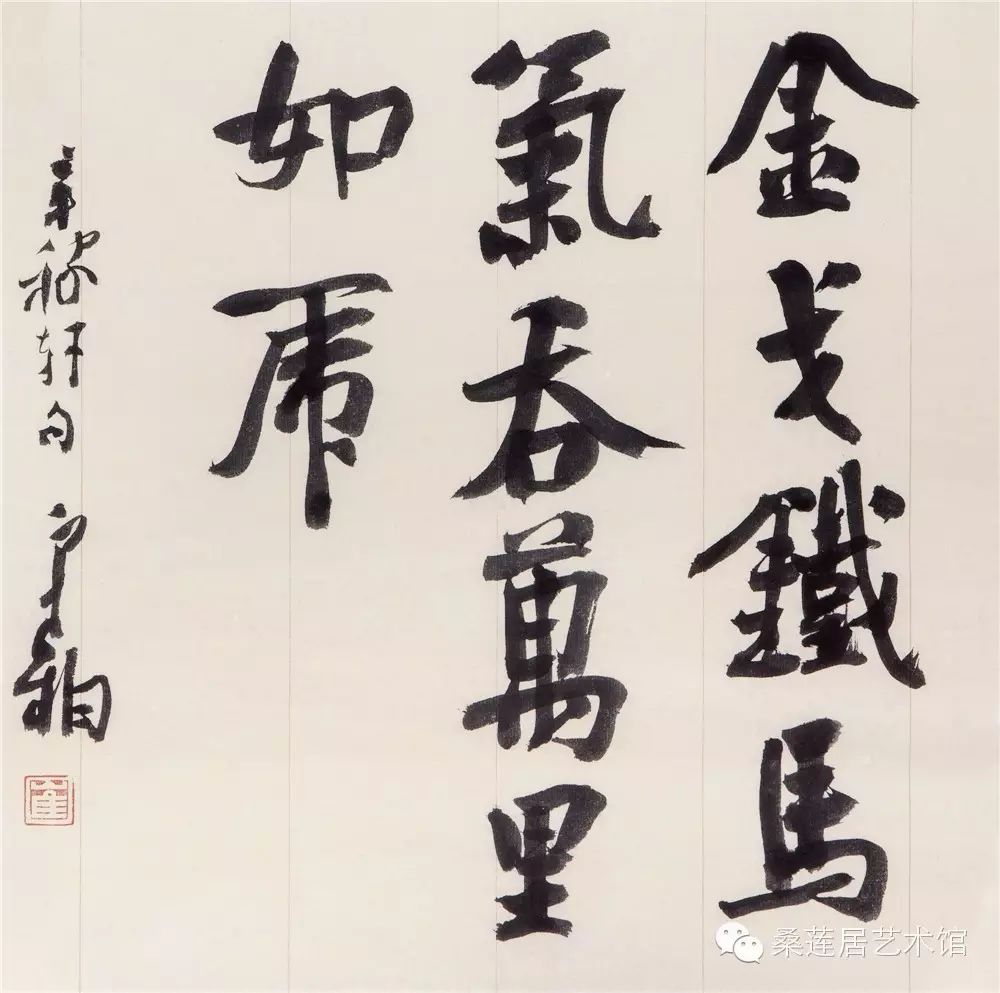 金戈鐵馬
氣吞萬里
如虎
辛稼轩句
桑莲居艺术馆